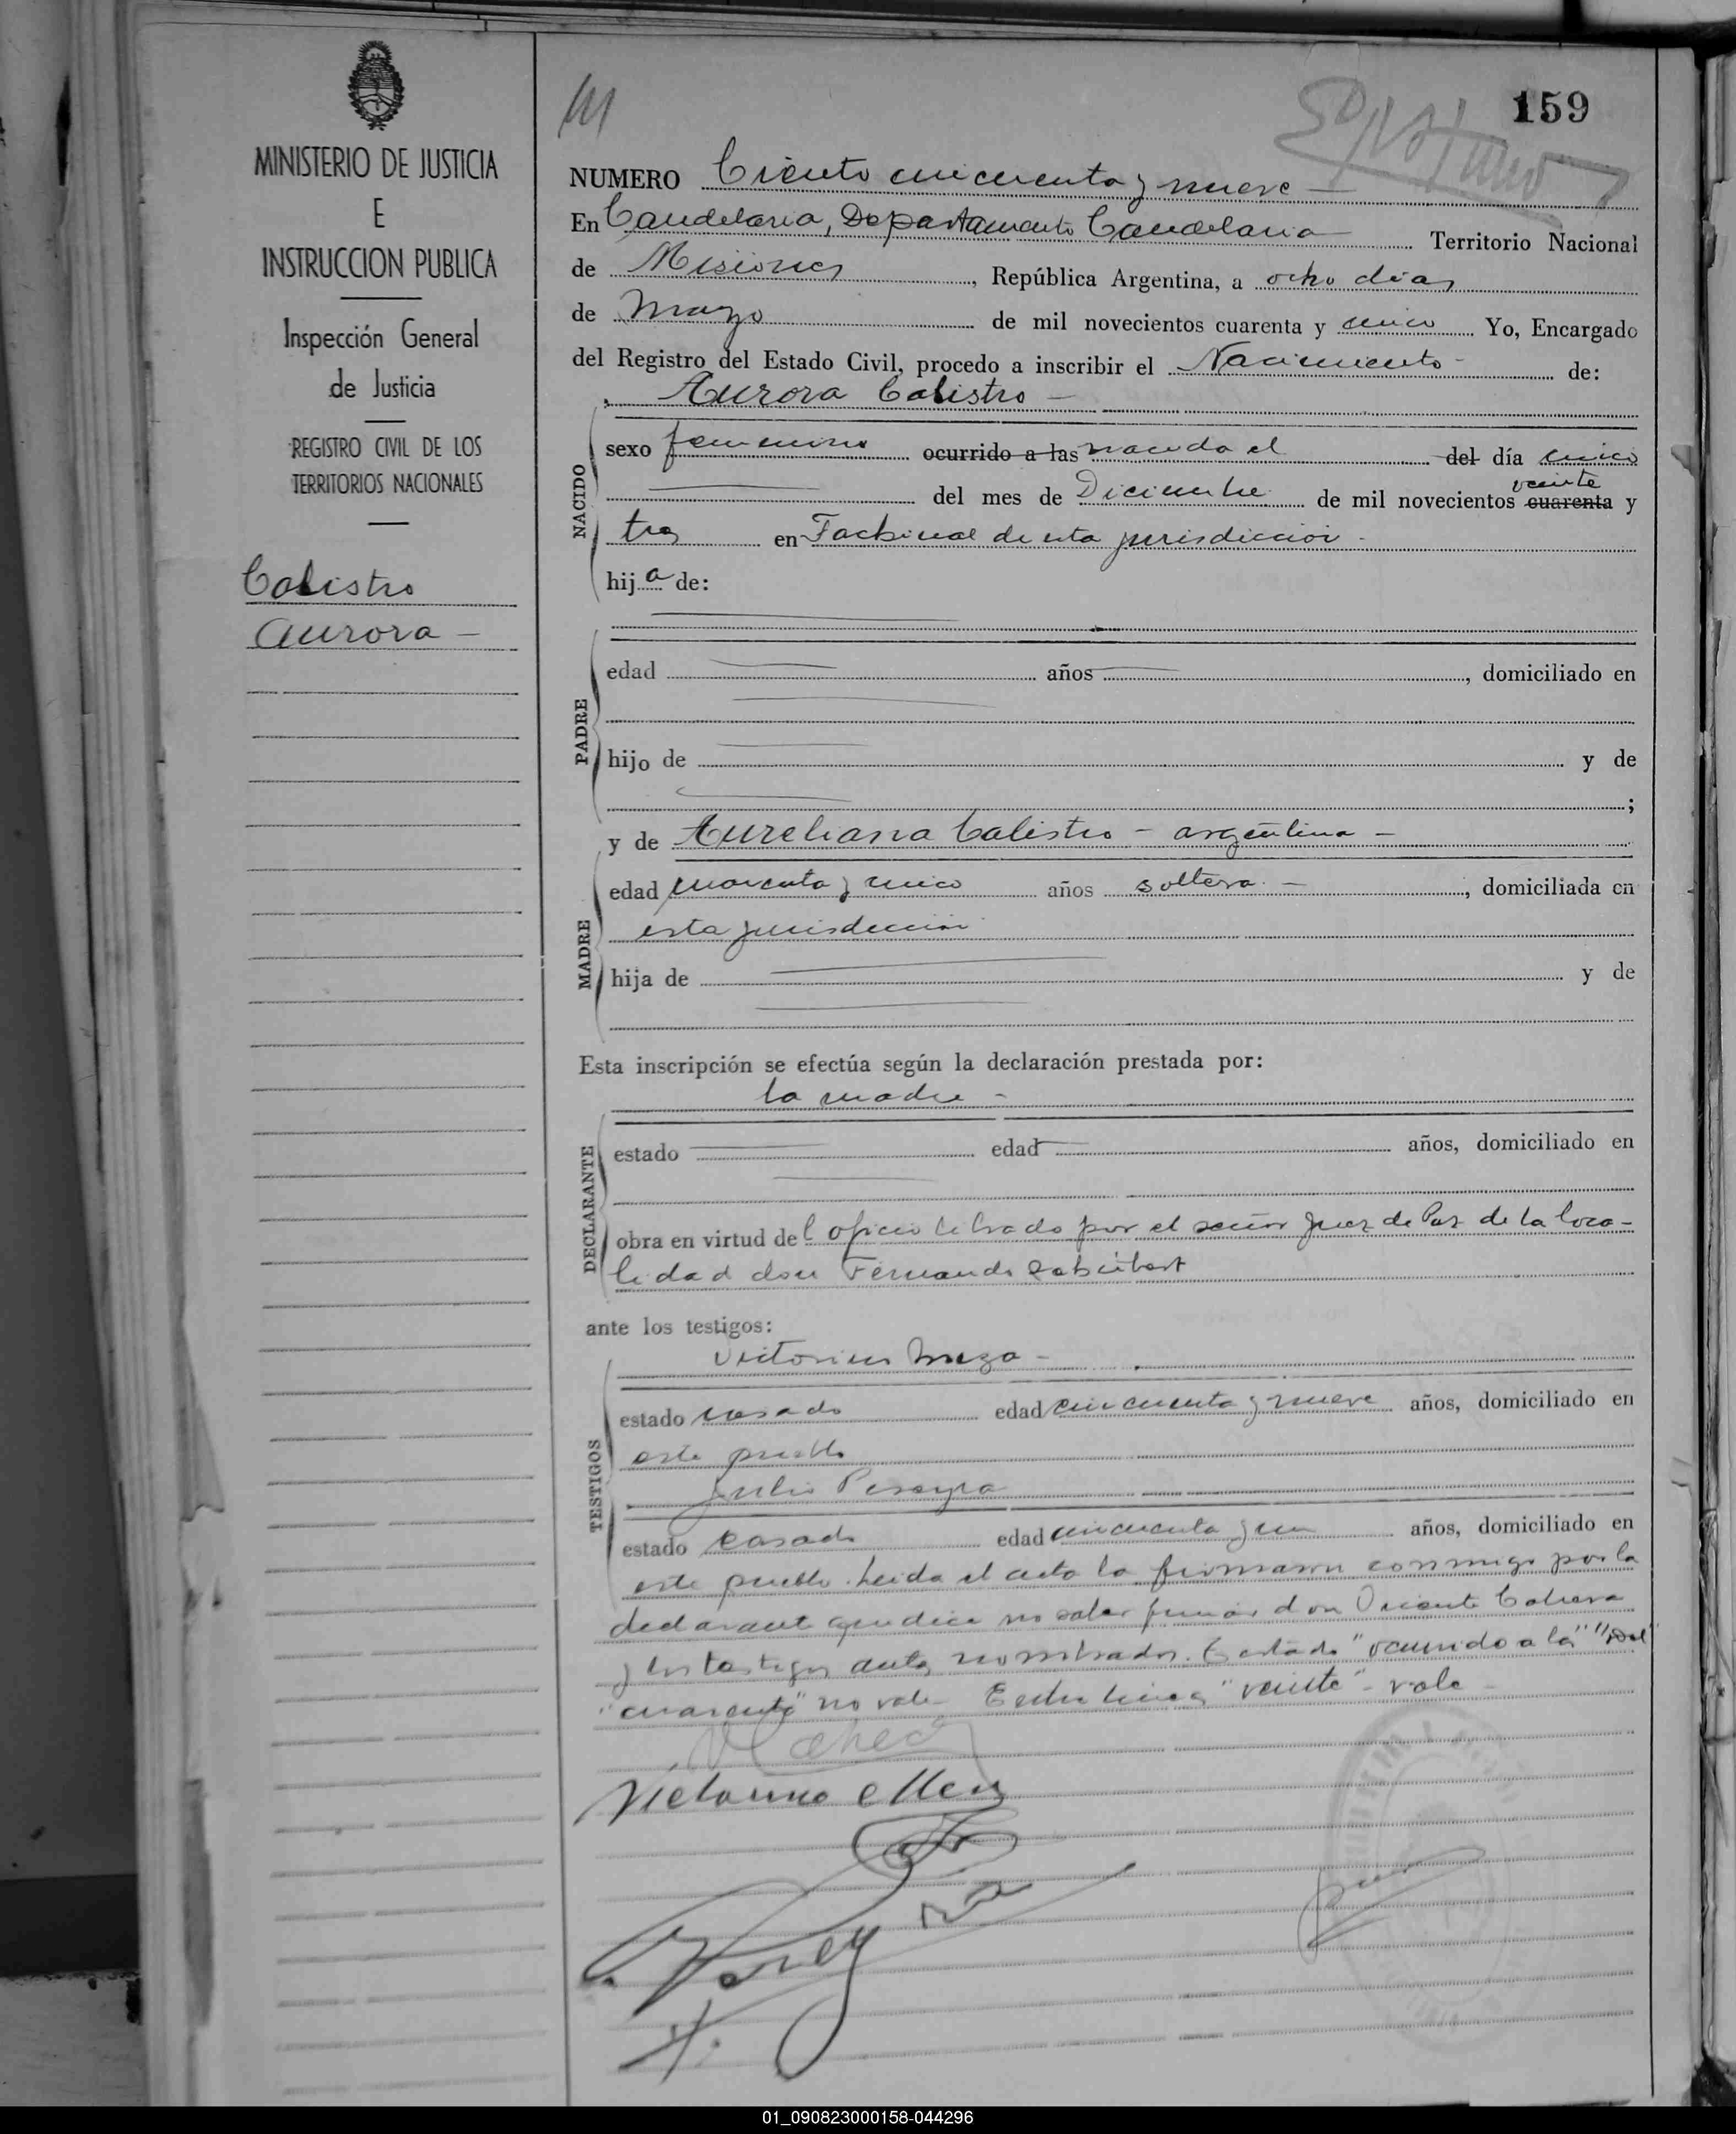 159
NUMERO Ciento cincuenta y nueve
En Candelaria, Departamento Candelaria Territorio Nacional
de Misiones, República Argentina, a ocho días
de Mayo de mil novecientos cuarenta y cinco Yo, Encargado
del Registro del Estado Civil, procedo a inscribir el Nacimiento de:
Aurora Calistro
NACIDO
sexo femenino ocurrido a las nacida el del día cinco
veinte
del mes de Diciembre de mil novecientos cuarenta y
tres en Fachinal de esta jurisdicción
hija de:
PADRE
edad años, domiciliado en
hijo de y de
;
MADRE
y de Aureliana Calistro - argentina -
edad cuarenta y cinco años soltera -, domiciliada en
esta jurisdicción
hija de y de
Esta inscripción se efectúa según la declaración prestada por:
la madre -
DECLARANTE
estado edad años, domiciliado en
obra en virtud del oficio librado por el señor Juez de Paz de la loca-
lidad don Fernando
ante los testigos:
TESTIGOS
Victorino Meza -
estado casado edad cincuenta y nueve años, domiciliado en
este pueblo
Julio Pereyra
estado casado edad cincuenta y un años, domiciliado en
este pueblo. Leida el acta la firmaron conmigo por la
declarante que dice no saber firmar don Vicente Cabrera
y los testigos antes nombrados. Testado "ocurrido a la" "del"
"cuarenta" no vale - Entre lineas "veinte" - vale -
Victorino Meza
MINISTERIO DE JUSTICIA
E
INSTRUCCION PUBLICA
Inspección General
de Justicia
REGISTRO CIVIL DE LOS
TERRITORIOS NACIONALES
Calistro
Aurora -
01_090823000158-044296